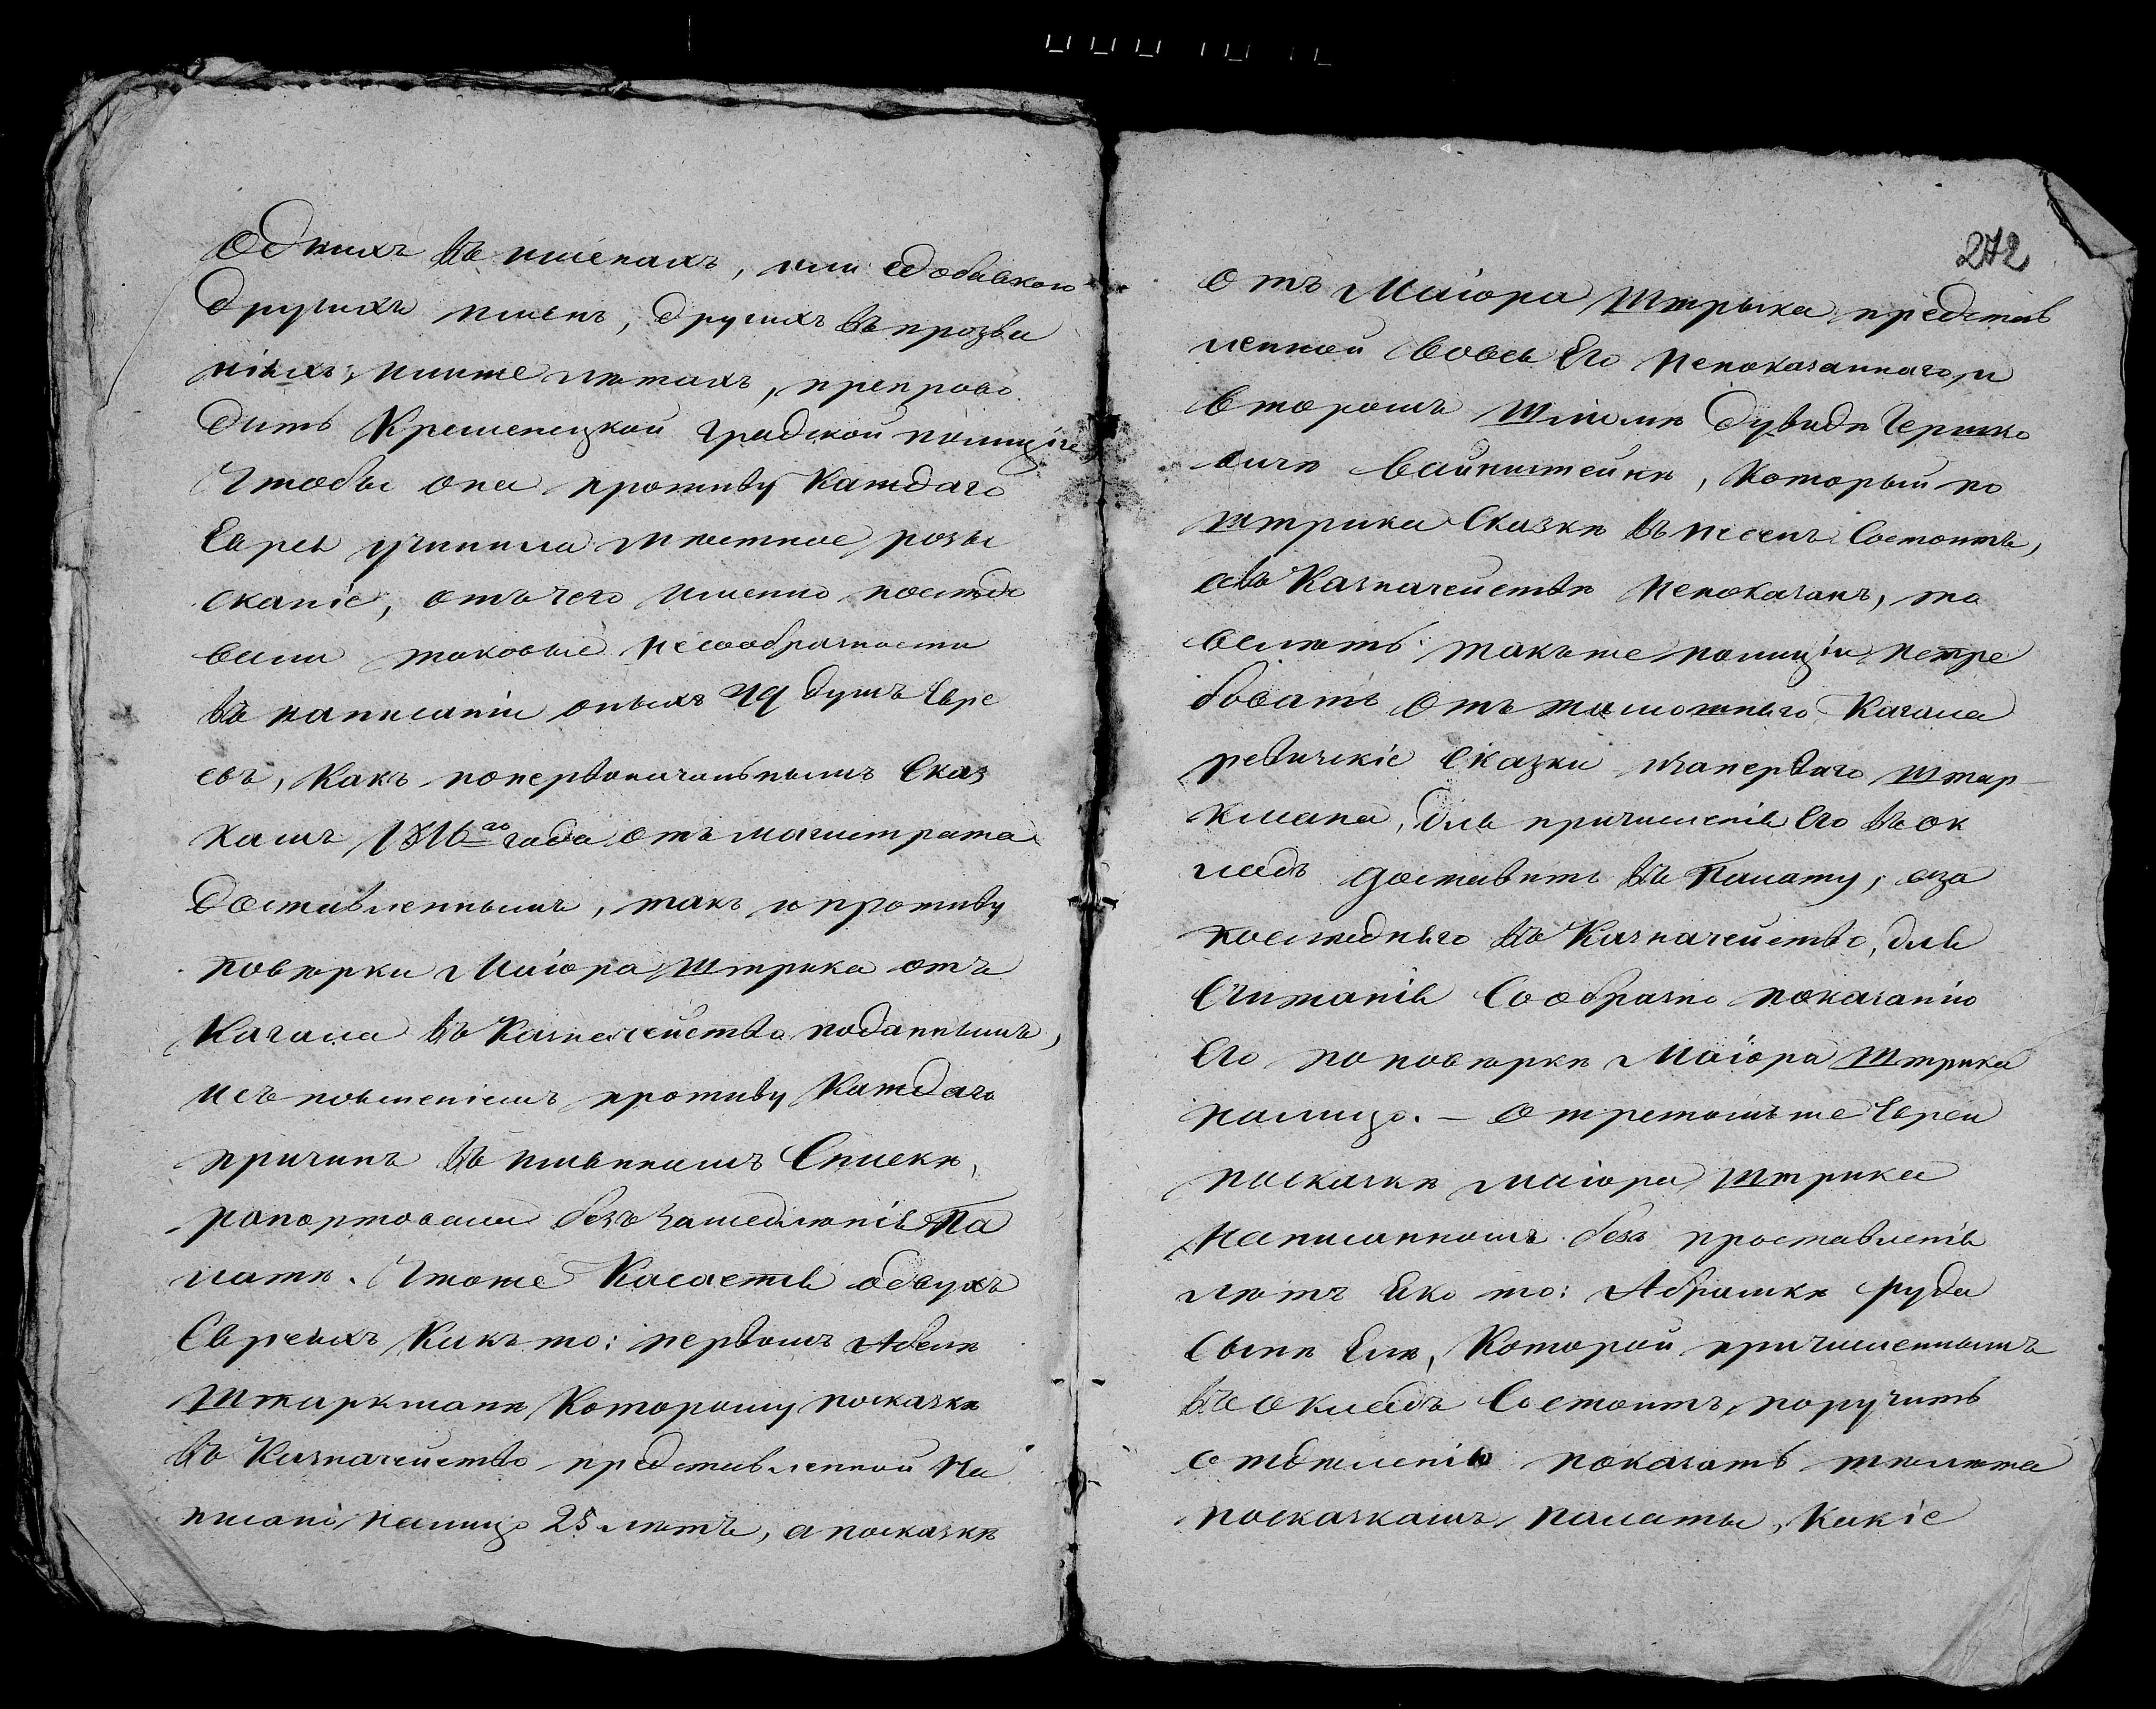 Однихъ въ именахъ, или здобавкою
Другихъ именъ, другихъ въ прозва
ніяхъ, ииже летахъ, препрово
дить Кременецкой Градской полиціи,
Чтобы она противу Каждаго
Еврея учинила местное розы
сканіе, отъ чего именно последо
вали таковые несообразности
въ написаніи оныхъ 29 душъ Евре
евъ, Какъ попервоначальнымъ Сказ
камъ 1816го года отъ магистрата
Доставленнымъ, такъ и противу
поверки Маіора Штрика отъ
Кагала въ Казначейство поданнымъ,
исъ поясненіемъ противу Каждаго
причинъ въ имянномъ Списке,
рапортовали безъ замедленія Па
лате. Чтоже Касается одвухъ
Евреяхъ Какъ то: первомъ Абеле
Штаркмане Которому посказке
въ Казначейство представленной На
писано налицо 25 летъ, а посказке
272
отъ Маіора Штрыка представ
ленной вовся Его Непоказаннаго, и
второмъ Шліоме Дувиде Гершко
виче Вайнштейне, Который по
Штрика Сказке въ несенъ Состоитъ,
авъ Казначействе Непоказанъ, то
велеть такъже полиціи истре
бовать отъ таможняго Кагала
ревизскіе Сказки иза перваго Штар
кмана, для причисленія Его въ ок
ладъ доставить въ Палату, аза
последняго въ Казначейство, для
Считанія Сообразно показанію
Его по поверке Маіора Штрика
налицо. – О третомъ же Евреи
посказке маіора Штрика
Написанномъ безъ проставленія
летъ Яко то: Абрамке Руда
Сыне Еле, Которой причисленнымъ
въ окладъ Состоитъ, поручить
отделенію показать те лета
посказкамъ Палаты, Какіе